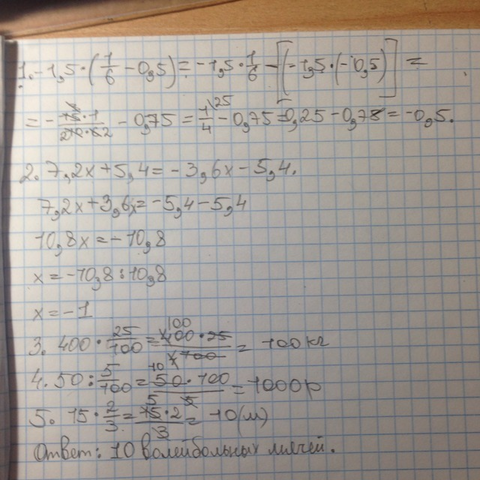 1. -1,5·(1/6 -0,5)= -1,5·1/6 -[-1,5·(-0,5)] =
= - 15·1/10·6 2 - 0,75 = 1/4 25 - 0,75 = 0,25 - 0,75 = -0,5.
2. 7,2x+5,4= -3,6x-5,4.
7,2x+3,6x=-5,4-5,4
10,8x=-10,8
x=-10,8:10,8
x=-1
3. 400·25/100= 100 400·25/1 100 = 100кг
4. 50:5/100= 10 50·100/5 = 1000р
5. 15·2/3= 5 15·2/3 = 10(м)
Ответ: 10 волейбольных мячей.